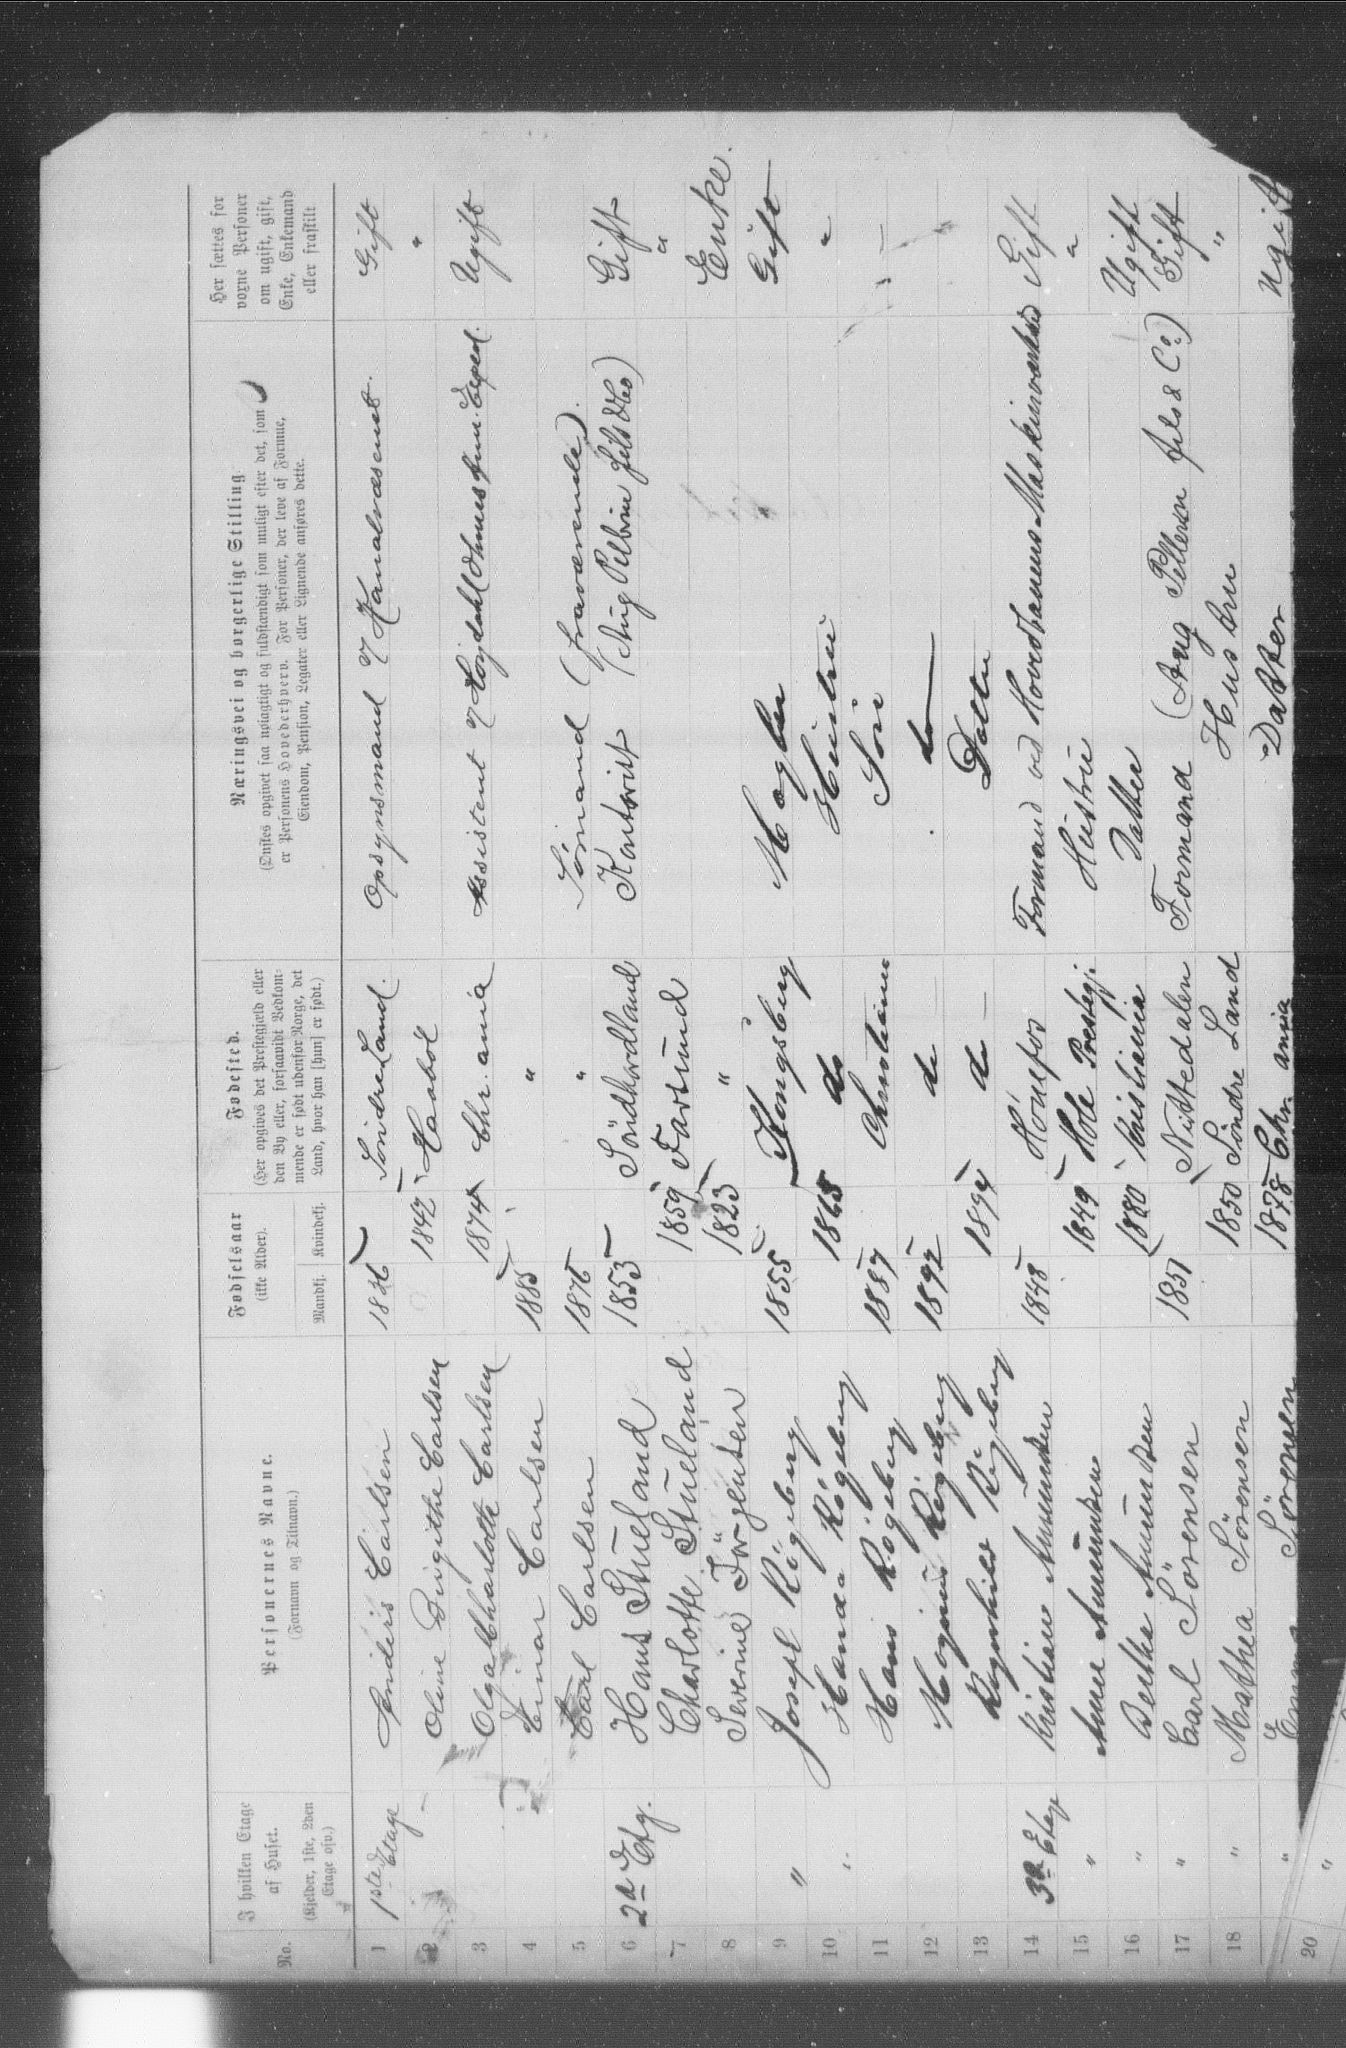 No.
I hvilken Etage
af Huset.
(Kjelder, 1ste, 2den
Etage osv.)
Personernes Navne.
(Fornavn og Tilnavn.)
Fødselsaar
(ikke Alder).
Mandkj.
Kvindekj.
Fødested.
(Her opgives det Prestegjeld eller
den By eller, forsaavidt Vedkom-
mende er født udenfor Norge, det
Land, hvor han [hun] er født.)
Næringsvei og borgerlige Stilling
(Ønskes opgivet saa nøiagtigt og fuldstændigt som muligt efter det, som
er Personens Hovederhverv. For Personer, der leve af Formue,
Eiendom, Pension, Legater eller Lignende anføres dette.
Her sættes for
voxne Personer
om ugift, gift,
Enke, Enkemand
eller fraskilt
1 1ste Etage Anders Carlsen Søndre Land. Opsynsmand v/ Kanalvæsenet. Gift
2 Oline Birgithe Carlsen 1842 Haabøl "
3 Olga Charlotte Carlsen 1874 Chr.ania Assistent v/ Ugift
4 Einar Carlsen 1885 "
5 Carl Carlsen 1876 " Sømand (fraværende).
6 2d Etg. Hans Stueland 1853 Søndhordland Kontorist (Aug Pellerin fils & Co) Gift
7 Charlotte Stueland 1859 Farsund "
8 Severine Jørgensen 1823 " Enke.
9 " Joseph Rögeberg 1855 Kongsberg Mægler Gift
10 " Rögeberg 1865 do Hustru "
11 Hans Rögeberg 1887 Christiania Søn
12 Magnus Rögeberg 1892 do do
13 Ragnhild Rögeberg 1894 do Datter
14 3de Etage Kristian Amundsen 1848 Hönefos Formand ved Hovedbanens Maskinværksted Gift
15 " Anne Amundsen 1849 Hole Prestegj. Hustru "
16 " Berthe Amundsen 1880 Kristiania Datter Ugift
17 " Carl Sörensen 1851 Nittedalen Formand (Aug Pellerin fils & Co.) Gift
18 " Mathea Sörensen 1850 Søndre Land Hustru "
" Emma Sörensen 1878 Chr. ania Datter Ugift
20 "